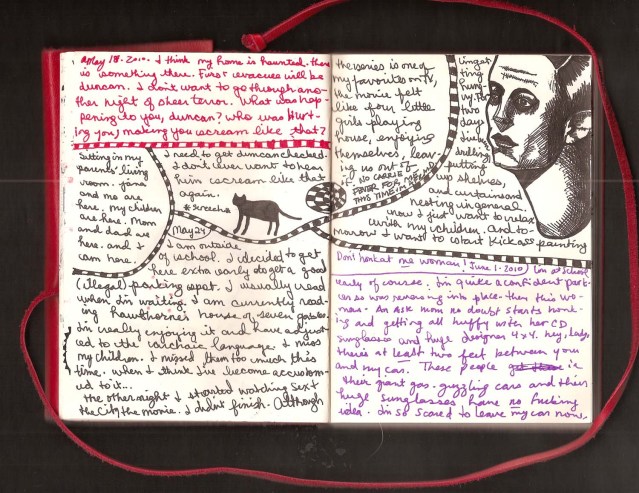 May 18. 2010. I think my home is haunted. there
is something there. First evacuee will be
duncan. I don't want to go through ano-
ther night of sheer terror. What was hap-
pening to you, duncan? who was Hurt-
ing you, making you scream like that?
Sitting in my
parents' living
room. jana
and me are
here. My children
are here. Mom
and dad are
here. and I
am here.
I need to get duncan checked.
I don't ever want to hear
him scream like that
again.
*Screech*
May 24
I am outside
of school. I decided to get
here extra early to get a good
(illegal) parking spot. I usually read
when I'm waiting. I am currently read-
ing Hawthorne's house of seven gables.
I'm really enjoying it and have adjust-
ed to the archaic language. I miss
my children. I missed them too much this
time. when I think I've become accustom-
ed to it...
the other night I started watching Sex &
the City the movie. I didn't finish. Although
the series is one of
my favorites on tv,
the movie felt
like four little
girls playing
house, enjoying
themselves, leav-
ing us out of
it. NO CARRIE
FEVER FOR ME
THIS TIME.
days
drilling,
putting
up shelves,
and curtains and
nesting in general.
now I just want to relax
with my children. And to-
morrow I want to start kickass painting
Don't honk at me woman! June 1. 2010) I'm at school
early of course. I'm quite a confident park-
er so was reversing into place. then this wo-
man. An ASK mom no doubt starts honk-
ing and getting all huffy with her CD
sunglasses and huge designer 4x4. hey, lady,
there's at least two feet between you
and my car. These people in
their giant gas-guzzling cars and their
huge sunglasses have no fucking
idea. I'm so scared to leave my car now,